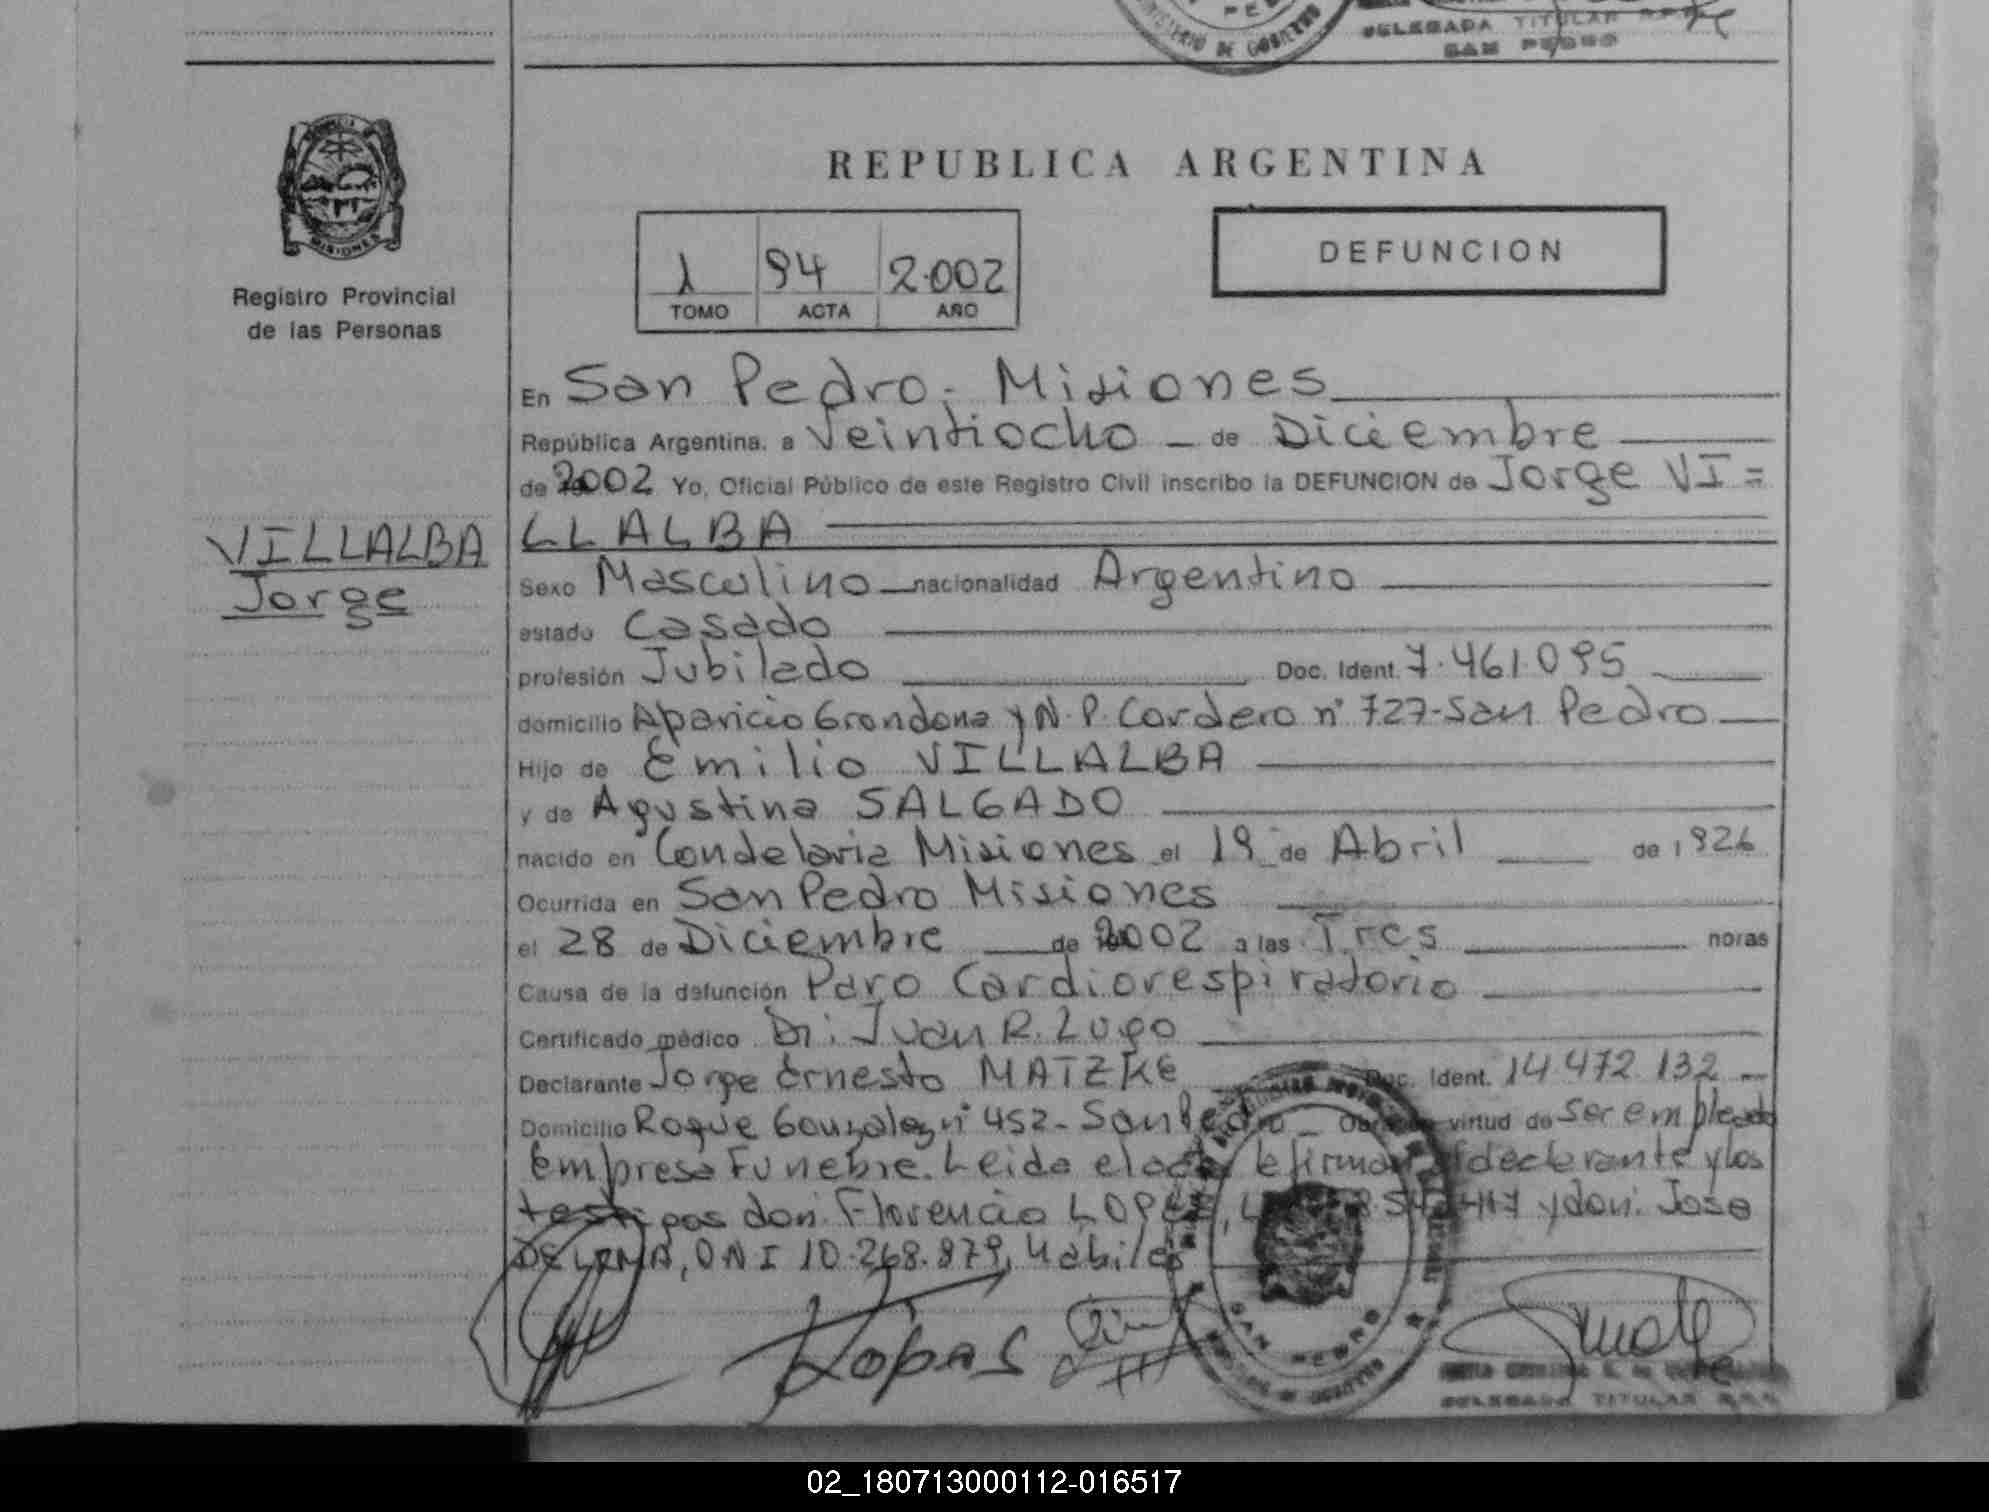 MINISTERIO DE GOBIERNO
DELEGADA TITULAR
SAN PEDRO
MISIONES
Registro Provincial
de las Personas
REPUBLICA ARGENTINA
1 94 2.002
TOMO ACTA AÑO
DEFUNCION
En San Pedro - Misiones
República Argentina, a Veintiocho - de Diciembre
de 2002 Yo, Oficial Público de este Registro Civil inscribo la DEFUNCION de Jorge VI=
LLALBA
VILLALBA
Jorge
Sexo Masculino nacionalidad Argentino
estado Casado
profesión Jubilado Doc. Ident. 7.461.095
domicilio Aparicio Grondona y N.P. Cordero nº 727-San Pedro
Hijo de Emilio VILLALBA
y de Agustina SALGADO
nacido en Candelaria Misiones el 19 de Abril de 1926
Ocurrida en San Pedro Misiones
el 28 de Diciembre de 2002 a las Tres horas
Causa de la defunción Paro Cardiorespiratorio
Certificado médico Dr: Juan R. Lugo
Declarante Jorge Ernesto MATZKE Doc. Ident. 14.472.132
Domicilio Roque Gonzalez nº 452- San Pedro - Obra en virtud de ser empleado
Empresa Funebre. Leida el acta le firman el declarante y los
testigos don: Florencio LOPEZ, y don: Jose
DE LIMA, DNI 10.268.879, habiles
Lopes
SAN PEDRO
DELEGADA TITULAR
02_180713000112-016517